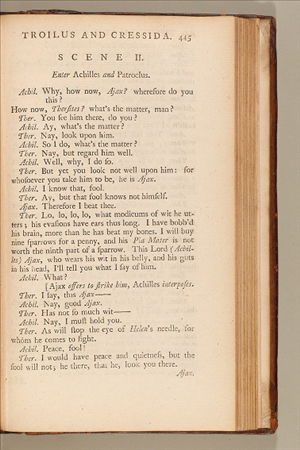 TROILUS AND CRESSIDA. 445
SCENE II.
Enter Achilles and Patroclus.
Achil. Why, how now, Ajax? wherefore do you
this?
How now, Therſites? what's the matter, man?
Ther. You ſee him there, do you?
Achil. Ay, what's the matter?
Ther. Nay, look upon him.
Achil. So I do, what's the matter?
Ther. Nay, but regard him well.
Achil. Well, why, I do ſo.
Ther. But yet you look not well upon him: for
whoſoever you take him to be, he is Ajax.
Achil. I know that, fool.
Ther. Ay, but that fool knows not himſelf.
Ajax. Therefore I beat thee.
Ther. Lo, lo, lo, lo, what modicums of wit he ut-
ters; his evaſions have ears thus long. I have bobb'd
his brain, more than he has beat my bones. I will buy
nine ſparrows for a penny, and his Pia Mater is not
worth the ninth part of a ſparrow. This Lord (Achil-
les) Ajax, who wears his wit in his belly, and his guts
in his head, I'll tell you what I ſay of him.
Achil. What?
[Ajax offers to ſtrike him, Achilles interpoſes.
Ther. I ſay, this Ajax——
Achil. Nay, good Ajax.
Ther. Has not ſo much wit——
Achil. Nay, I muſt hold you.
Ther. As will ſtop the eye of Helen's needle, for
whom he comes to fight.
Achil. Peace, fool!
Ther. I would have peace and quietneſs, but the
fool will not; he there, that he, look you there.
Ajax.